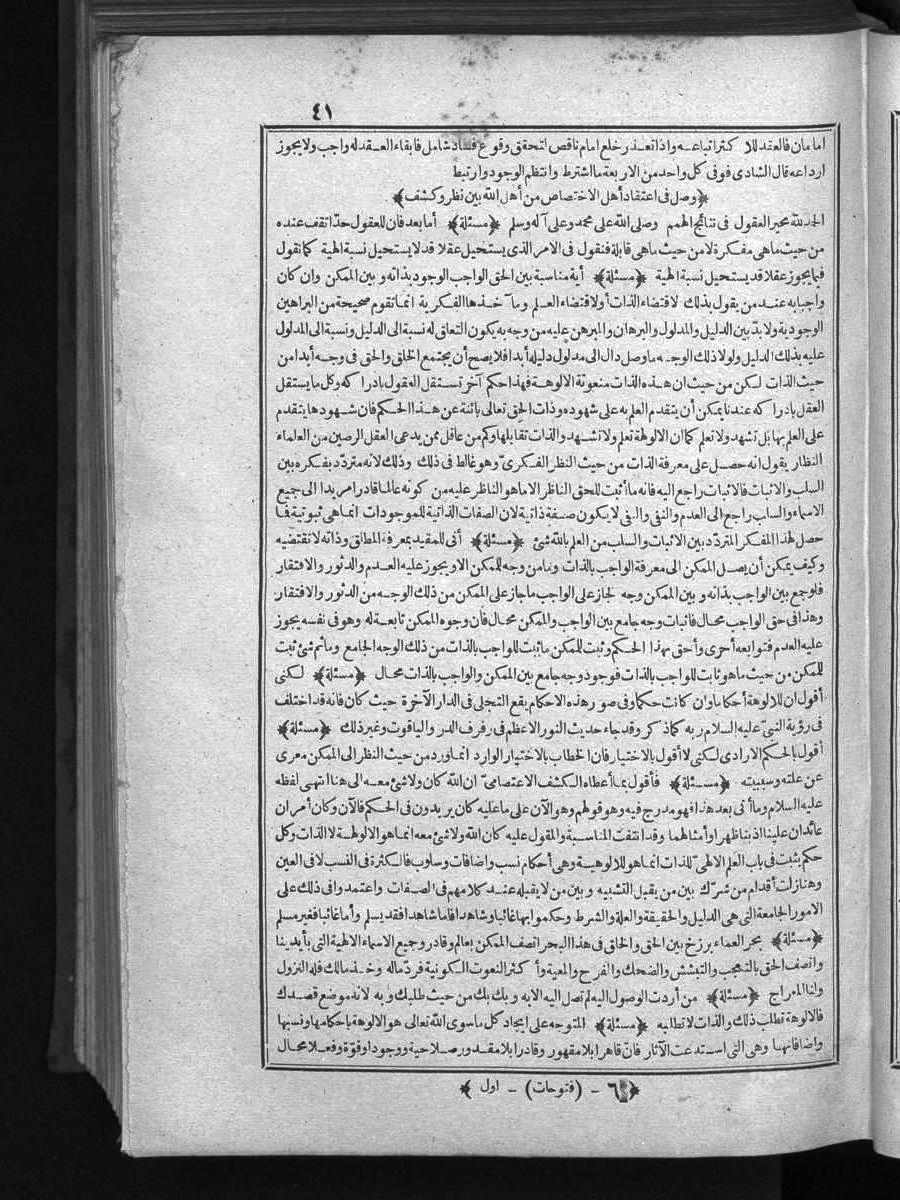 ٤١
امامان فالعقد للاكثر اتباعه واذا تعذر خلع امام ناقص لتحقق وقوع فساد شامل فابقاء العقد له واجب ولا يجوز
ارداعه قال الشادى فوفى كل واحد من الاربعة ما اشترط وانتظم الوجود وارتبط
﴿وصل فى اعتقاد أهل الاختصاص من أهل الله بين نظر وكشف﴾
الحمد لله محير العقول فى نتائج الهمم وصلى الله على محمد وعلى آله وسلم ﴿مسئلة﴾ أما بعد فان للعقول حدا تقف عنده
من حيث ماهى مفكرة لا من حيث ماهى قابلة فنقول فى الامر الذى يستحيل عقلا قد لا يستحيل نسبة الهية كما نقول
فيما يجوز عقلا قد يستحيل نسبة الهية ﴿مسئلة﴾ أية مناسبة بين الحق الواجب الوجود بذاته وبين الممكن وان كان
واجبا به عند من يقول بذلك لاقتضاء الذات أو لاقتضاء العلم وما خذها الفكرية انما تقوم صحيحة من البراهين
الوجودية ولا بد بين الدليل والمدلول والبرهان والمبرهن عليه من وجه به يكون التعلق له نسبة الى الدليل ونسبة الى المدلول
عليه بذلك الدليل ولولا ذلك الوجه ما وصل دال الى مدلول دليله أبدا فلا يصح أن يجتمع الخلق والحق فى وجه أبدا من
حيث الذات لكن من حيث ان هذه الذات منعوتة الالوهة فهذا حكم آخر تستقل العقول بادراكه وكل ما يستقل
العقل بادراكه عندنا يمكن أن يتقدم العلم به على شهوده وذات الحق تعالى بائنة عن هذا الحكم فان شهودها يتقدم
على العلم بها بل تشهد ولا تعلم كما ان الالوهة تعلم ولا تشهد والذات تقابلها وكم من عاقل ممن يدعى العقل الرصين من العلماء
النظار يقول انه حصل على معرفة الذات من حيث النظر الفكرى وهو غالط فى ذلك وذلك لانه متردد بفكره بين
السلب والاثبات فالاثبات راجع اليه فانه ما أثبت للحق الناظر الا ما هو الناظر عليه من كونه عالما قادرا مريدا الى جميع
الاسماء والسلب راجع الى العدم والنفى والنفى لا يكون صفة ذاتية لان الصفات الذاتية للموجودات انما هى ثبوتية فما
حصل لهذا المفكر المتردد بين الاثبات والسلب من العلم بالله شئ ﴿مسئلة﴾ أنى للمقيد بمعرفة المطلق وذاته لا تقتضيه
وكيف يمكن أن يصل الممكن الى معرفة الواجب بالذات وما من وجه للممكن الا ويجوز عليه العدم والدثور والافتقار
فلو جمع بين الواجب بذاته وبين الممكن وجه لجاز على الواجب ما جاز على الممكن من ذلك الوجه من الدثور والافتقار
وهذا فى حق الواجب محال فاثبات وجه جامع بين الواجب والممكن محال فان وجوه الممكن تابعة له وهو فى نفسه يجوز
عليه العدم فتوابعه أحرى وأحق بهذا الحكم وثبت للممكن ما ثبت للواجب بالذات من ذلك الوجه الجامع وما ثم شئ ثبت
للممكن من حيث ما هو ثابت للواجب بالذات فوجود وجه جامع بين الممكن والواجب بالذات محال ﴿مسئلة﴾ لكنى
أقول ان للالوهة أحكاما وان كانت حكما وفى صور هذه الاحكام يقع التجلى فى الدار الآخرة حيث كان فانه قد اختلف
فى رؤية النبى عليه السلام ربه كما ذكر وقد جاء حديث النور الاعظم فى رفرف الدر والياقوت وغير ذلك ﴿مسئلة﴾
أقول بالحكم الارادى لكنى لا أقول بالاختيار فان الخطاب بالاختيار الوارد انما ورد من حيث النظر الى الممكن معرى
عن علته وسببيته ﴿مسئلة﴾ فأقول بما أعطاه الكشف الاعتصامى ان الله كان ولا شئ معه الى هنا انتهى لفظه
عليه السلام وما أتى بعد هذا فهو مدرج فيه وهو قولهم وهو الآن على ما عليه كان يريدون فى الحكم فالآن وكان أمران
عائدان علينا اذ بنا ظهرا وأمثالهما وقد انتفت المناسبة والمقول عليه كان الله ولا شئ معه انما هو الالوهة لا الذات وكل
حكم يثبت فى باب العلم الالهى للذات انما هو للالوهية وهى أحكام نسب واضافات وسلوب فالكثرة فى النسب لا فى العين
وهنا زلت أقدام من شرك بين من يقبل التشبيه وبين من لا يقبله عند كلامهم فى الصفات واعتمدوا فى ذلك على
الامور الجامعة التى هى الدليل والحقيقة والعلة والشرط وحكموا بها غائبا وشاهدا فاما شاهدا فقد يسلم وأما غائبا فغير مسلم
﴿مسئلة﴾ بحر العماء برزخ بين الحق والخلق فى هذا البحر اتصف الممكن بعالم وقادر وجميع الاسماء الالهية التى بأيدينا
واتصف الحق بالتعجب والتبشش والضحك والفرح والمعية وأكثر النعوت الكونية فرد ماله وخذ مالك فله النزول
ولنا المعراج ﴿مسئلة﴾ من أردت الوصول اليه لم تصل اليه الا به وبك بك من حيث طلبك وبه لانه موضع قصدك
فالالوهة تطلب ذلك والذات لا تطلبه ﴿مسئلة﴾ المتوجه على ايجاد كل ما سوى الله تعالى هو الالوهة باحكامها ونسبها
واضافاتها وهى التى استدعت الآثار فان قاهرا بلا مقهور وقادرا بلا مقدور صلاحية ووجودا وقوة وفعلا محال
﴿٦ - (فتوحات) - اول﴾